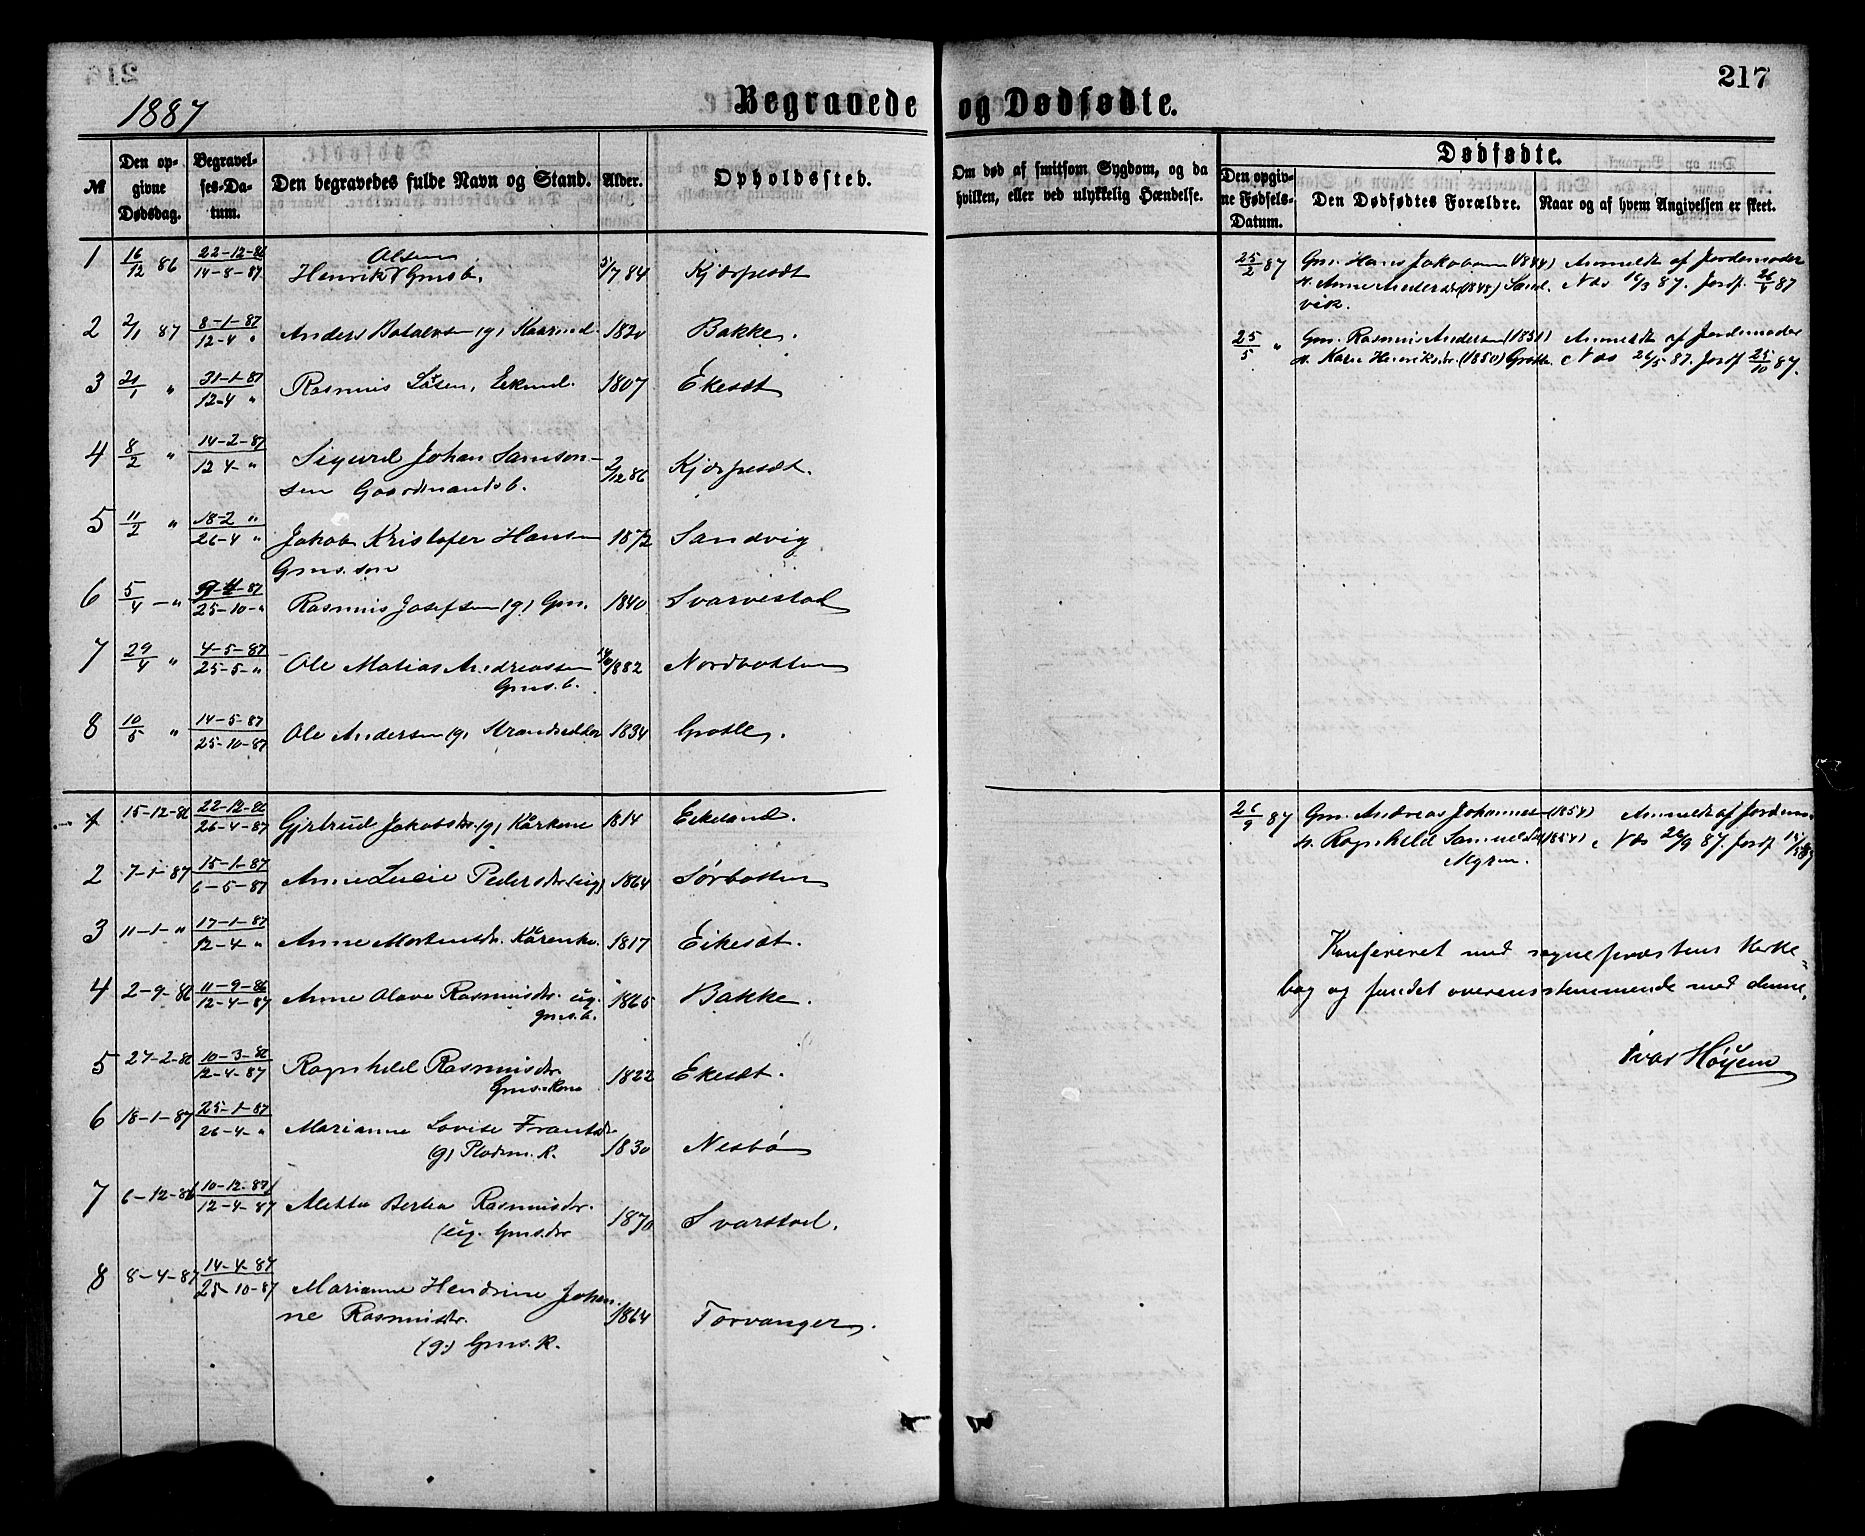 217
1887
Begravede og Dødfødte.
Dødfødte.
№ Den opgivne Dødsdag. Begravelses-Datum. Den begravedes fulde Navn og Stand. Alder. Opholdssted. Om død af smitsom Sygdom, og da hvilken, eller ved ulykkelig Hændelse. Den opgivne Fødsels-Datum. Den Dødfødtes Forældre. Naar og af hvem Angivelsen er skeet.
1 16/12 86 22-12-86 14-8-87
Henrik Gmsb. 5/7 84 Kjærpesæt
2 2/1 87 8-1-87 12-4 " Anders (g) 1820 Bakke.
3 21/1 " 31-1-87 12-4 " Rasmus 1807 Ekesæt
4 8/2 " 14-2-87 12 4- " Sigurd Johan Samson-
sen Gaardmandsb. 2/12 86 Kjærpesæt.
5 11/2 " 18-2 " 26-4 " Jakob Kristofer Hansen 1872 Sandvig
Gms. søn
6 5/4 -" 25-10-" Rasmus Josefsen (g) Gm. 1840 Svarvestad
7 29/4 " 4-5-87 25-5-" Ole Matias Andreassen 1882 Nordbotten
Gms. b.
8 10/5 " 14-5-87 25-10-87 Ole Andersen (g) Strandsidder 1834 Grotle.
25/2 87 Gm. Hans Jakobsen (1844) Anmeldt af Jordemoder
H. Anne Andersdr (1848) Sand- Nds 16/3 87. Josf. 26/4 87
vik.
25/5 " Gm. Rasmus Andersen (1851) Anmeldt af Jordemoder
H. Kari Henriksdr. (1850) Grotle. Nds 26/5 87. Josf 25/10 87.
1 15-12-86 22-12-86 26-4-87 Gjertrud Jakobsdr. (g) Kårkone 1814 Eikeland.
2 7-1-87 15-1-87 6-5-87 Anne Lucie Pedersdr. (ug) 1864 Sørbotten
3 11-1-" 17-1-87 12-4-" Anne Mortensdr. Kårenke. 1817 Eikesæt.
4 2-9-86 11-9-86 12-4-87 Anne Olave Rasmusdr. ug. 1865 Bakke.
gms. b.
5 27-2-86 10-3-86 12-4-87 Ragnhild Rasmusdr. 1822 Ekesæt.
Gms. Kone
6 18-1-87 25-1-87 26-4-" Marianne Lovise Frantsdr
(g) Pladsm. K. 1830 Nesbø
7 6-12-86 10-12-87 12-4-87 Bertea Rasmusdr.
(ug. Gmsdr 1870 Svarstad.
8 8-4-87 14-4-87 25-10-87 Marianne Hendrine Johan-
ne Rasmusdr. 1864 Torvanger.
(g.) Gms. K.
26/9 87 Gm. Andreas Johannes (1854) Anmeldt af Jordem.
H. Ragnhild Samuelsdr (1854) Nds 26/9 87. Josf.
Myren.
Konfereret med sogneprestens Kirke-
bog og fundet overensstemmende med denne.
Ivar Høyem